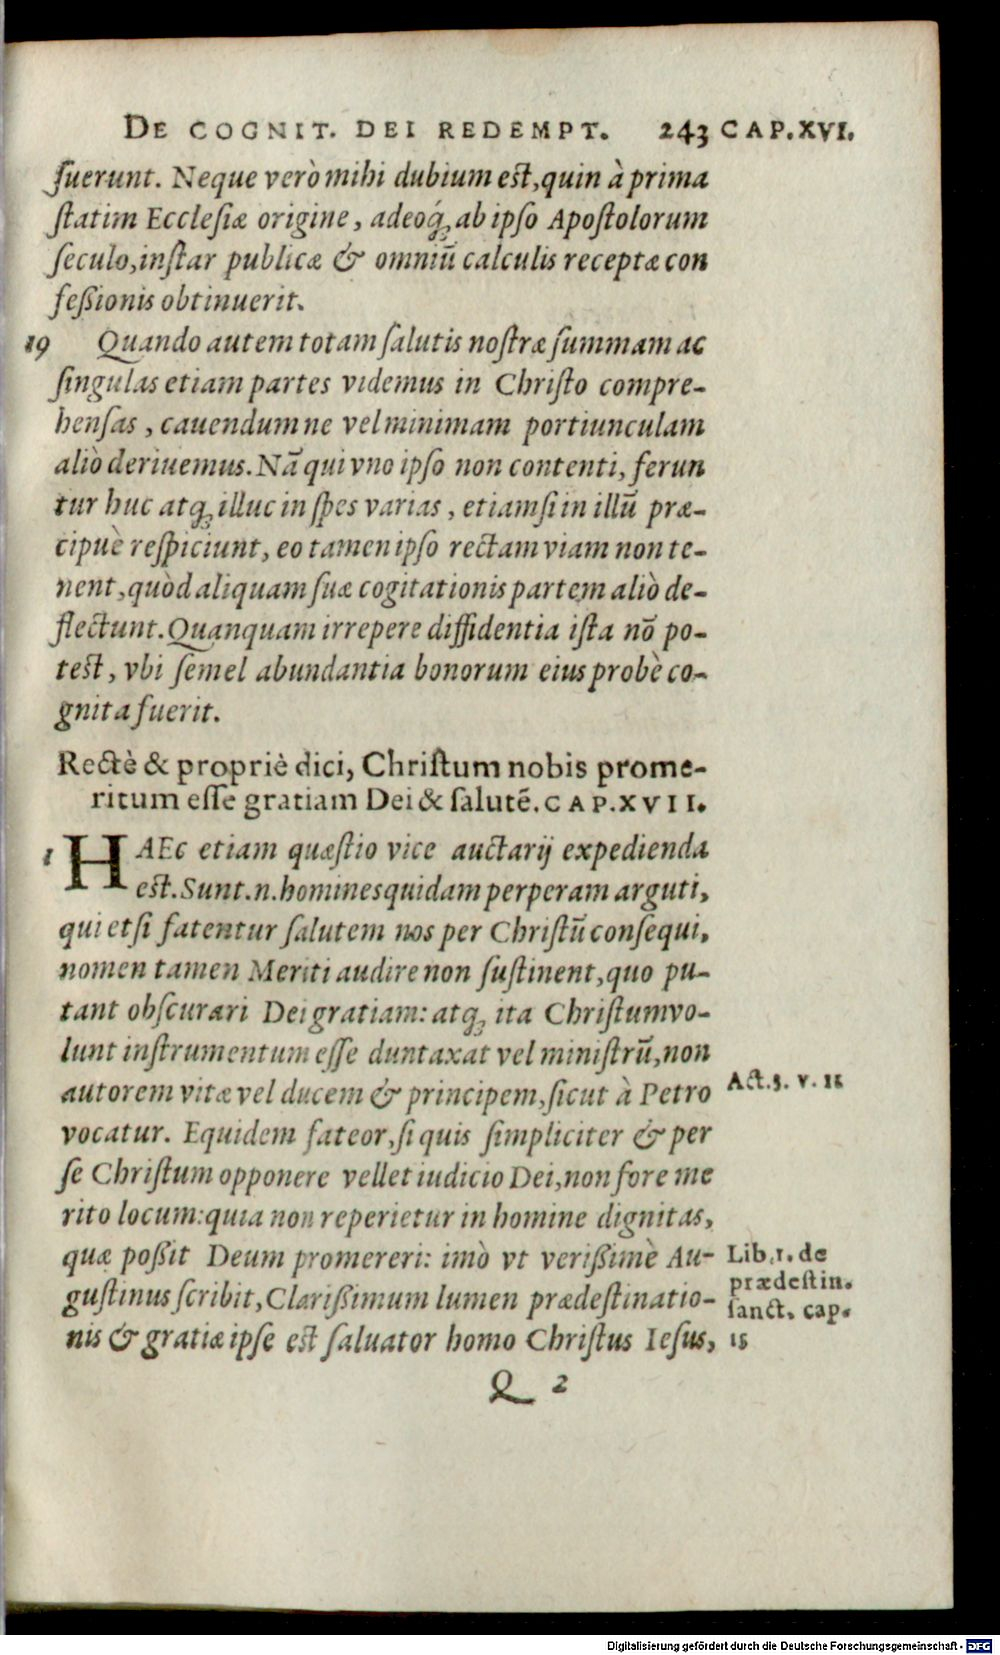 DE COGNIT. DEI REDEMPT. 243 CAP.XVI.
fuerunt. Neque verò mihi dubium est, quin à prima
statim Ecclesiæ origine, adeoq́; ab ipso Apostolorum
seculo, instar publicæ & omniũ calculis receptæ con
fessionis obtinuerit.
19 Quando autem totam salutis nostræ summam ac
singulas etiam partes videmus in Christo compre-
hensas, cauendum ne vel minimam portiunculam
aliò deriuemus. Nã qui vno ipso non contenti, ferun
tur huc atq; illuc in spes varias, etiamsi in illũ præ-
cipuè respiciunt, eo tamen ipso rectam viam non te-
nent, quòd aliquam suæ cogitationis partem aliò de-
flectunt. Quanquam irrepere diffidentia ista nõ po-
test, vbi semel abundantia bonorum eius probè co-
gnita fuerit.
Rectè & propriè dici, Christum nobis prome-
ritum esse gratiam Dei & salutẽ. CAP.XVII.
1 HAEc etiam quæstio vice auctarij expedienda
est. Sunt .n. homines quidam perperam arguti,
qui etsi fatentur salutem nos per Christũ consequi,
nomen tamen Meriti audire non sustinent, quo pu-
tant obscurari Dei gratiam: atq; ita Christum vo-
lunt instrumentum esse duntaxat vel ministrũ, non
autorem vitæ vel ducem & principem, sicut à Petro
Act.3. v. 15
vocatur. Equidem fateor, si quis simpliciter & per
se Christum opponere vellet iudicio Dei, non fore me
rito locum: quia non reperietur in homine dignitas,
quæ possit Deum promereri: imò vt verissimè Au-
gustinus scribit, Clarissimum lumen prædestinatio-
nis & gratiæ ipse est saluator homo Christus Iesus,
Lib.1. de
prædestin.
sanct. cap.
15
Q 2
Digitalisierung gefördert durch die Deutsche Forschungsgemeinschaft - DFG